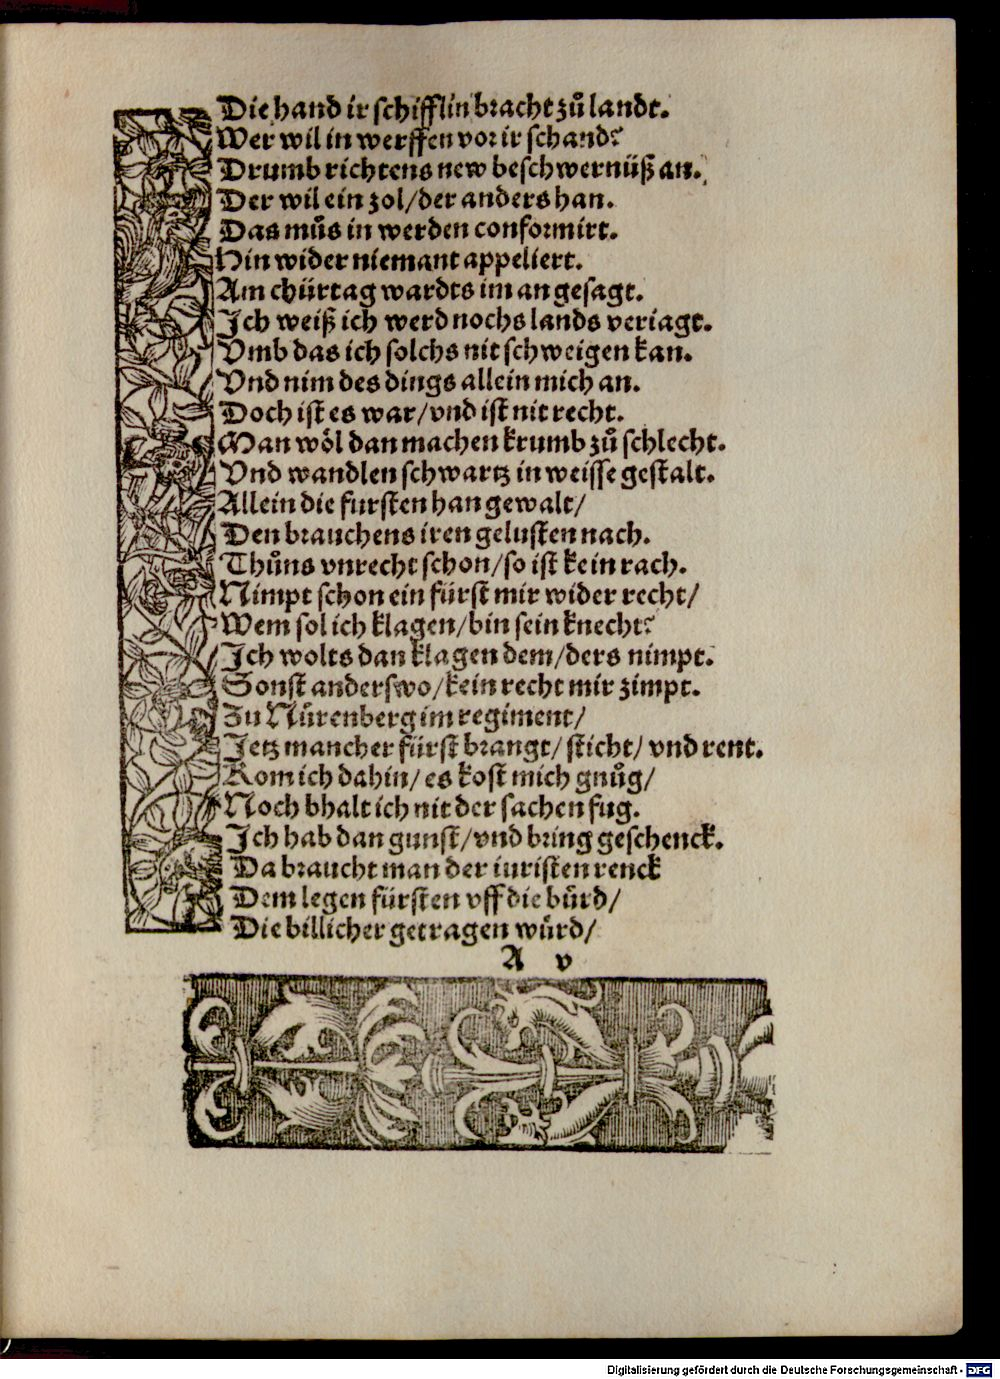 Die hand ir schifflin bracht zů landt.
Wer wil in werffen vor ir schand?
Drumb richtens new beschwernüß an.
Der wil ein zol/der anders han.
Das můs in werden conformirt.
Hin wider niemant appeliert.
Am chürtag wardts im an gesagt.
Ich weiß ich werd nochs lands veriagt.
Vmb das ich solchs nit schweigen kan.
Vnd nim des dings allein mich an.
Doch ist es war/vnd ist nit recht.
Man wöl dan machen krumb zů schlecht.
Vnd wandlen schwartz in weisse gestalt.
Allein die fursten han gewalt/
Den brauchens iren gelusten nach.
Thůns vnrecht schon/so ist kein rach.
Nimpt schon ein fürst mir wider recht/
Wem sol ich klagen/bin sein knecht?
Ich wolts dan klagen dem/ders nimpt.
Sonst anderswo/kein recht mir zimpt.
Zu Nürenberg im regiment/
Jetz mancher fürst brangt/sticht/vnd rent.
Kom ich dahin/es kost mich gnůg/
Noch bhalt ich nit der sachen fug.
Ich hab dan gunst/vnd bring geschenck.
Da braucht man der iuristen renck
Dem legen fürsten vff die bürd/
Die billicher getragen würd/
A v
Digitalisierung gefördert durch die Deutsche Forschungsgemeinschaft - DFG